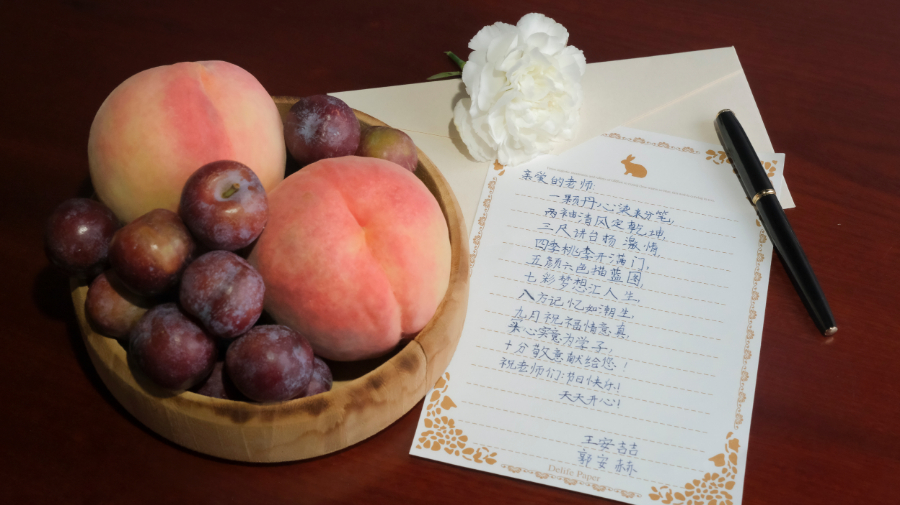 亲爱的老师:
一颗丹心染粉笔,
两袖清风定乾坤,
三尺讲台扬激情,
四季桃李开满门,
五颜六色描蓝图,
七彩梦想汇人生,
八方记忆如潮生,
九月祝福情意真,
朱心实意为学子,
十分敬意献给您!
祝老师们:节日快乐!
天天开心!
王安喆
郭安赫
Delife Paper